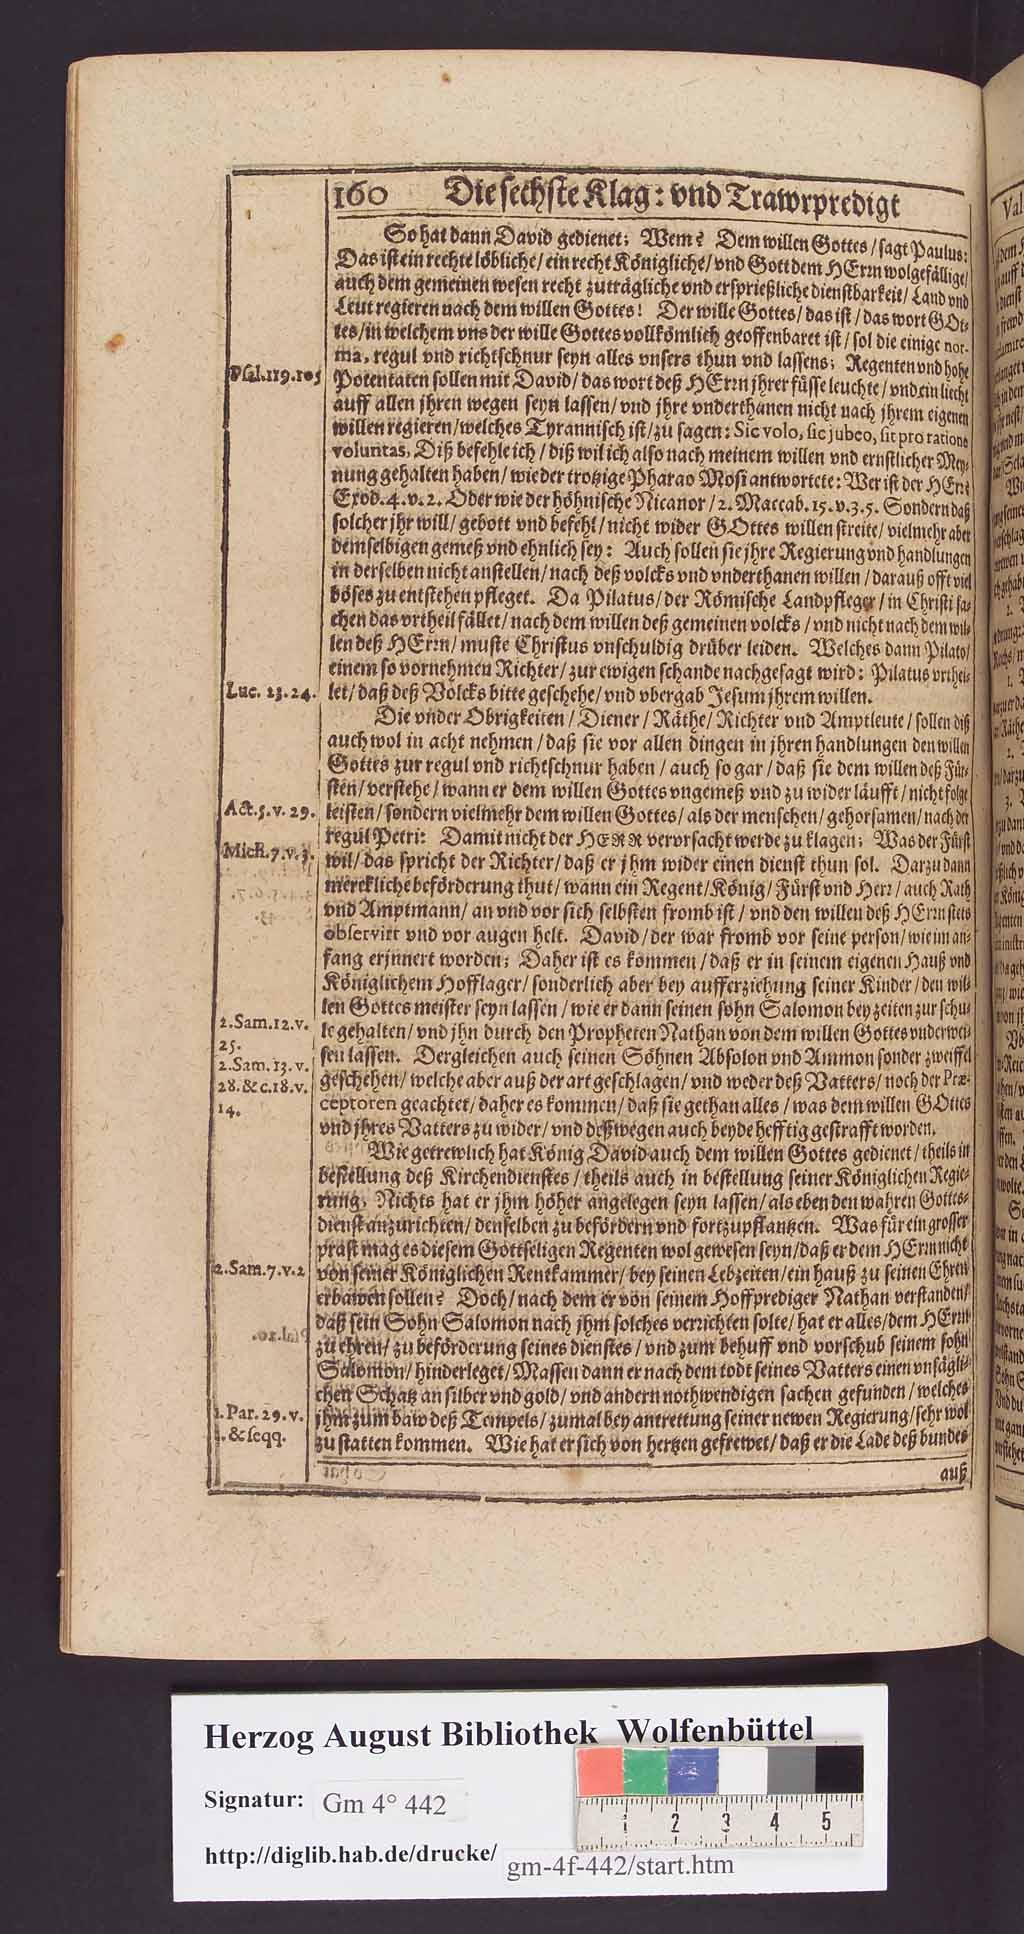 160 Die sechste Klag: vnd Trawrpredigt
So hat dann David gedienet; Wem? Dem willen Gottes / sagt Paulus:
Das ist ein rechte löbliche / ein recht Königliche / vnd Gott dem HErrn wolgefällige /
auch dem gemeinen wesen recht zuträgliche vnd ersprießliche dienstbarkeit / Land vnd
Leut regieren nach dem willen Gottes! Der wille Gottes / das ist / das wort GOt-
tes / in welchem vns der wille Gottes vollkömlich geoffenbaret ist / sol die einige nor-
ma, regul vnd richtschnur seyn alles vnsers thun vnd lassens; Regenten vnd hohe
Psal. 119. 105
Potentaten sollen mit David / das wort deß HErrn jhrer füsse leuchte / vnd ein liecht
auff allen jhren wegen seyn lassen / vnd jhre vnderthanen nicht nach jhrem eigenen
willen regieren / welches Tyrannisch ist / zu sagen: Sic volo, sic jubeo, sit pro ratione
voluntas, Diß befehle ich / diß wil ich also nach meinem willen vnd ernstlicher Mey-
nung gehalten haben / wie der trotzige Pharao Mosi antwortete: Wer ist der HErr?
Exod. 4. v. 2. Oder wie der höhnische Nicanor / 2. Maccab. 15. v. 3. 5. Sondern daß
solcher jhr will / gebott vnd befehl / nicht wider GOttes willen streite / vielmehr aber
demselbigen gemeß vnd ehnlich sey: Auch sollen sie jhre Regierung vnd handlungen
in derselben nicht anstellen / nach deß volcks vnd vnderthanen willen / darauß offt viel
böses zu entstehen pfleget. Da Pilatus / der Römische Landpfleger / in Christi sa-
chen das vrtheil fället / nach dem willen deß gemeinen volcks / vnd nicht nach dem wil-
len deß HErrn / muste Christus vnschuldig drüber leiden. Welches dann Pilato /
einem so vornehmen Richter / zur ewigen schande nachgesagt wird: Pilatus vrthei-
Luc. 23. 24.
let / daß deß Volcks bitte geschehe / vnd vbergab Jesum jhrem willen.
Die vnder Obrigkeiten / Diener / Räthe / Richter vnd Amptleute / sollen diß
auch wol in acht nehmen / daß sie vor allen dingen in jhren handlungen den willen
Gottes zur regul vnd richtschnur haben / auch so gar / daß sie dem willen deß Für-
sten / verstehe / wann er dem willen Gottes vngemeß vnd zu wider läufft / nicht folge
Act. 5. v. 29.
leisten / sondern vielmehr dem willen Gottes / als der menschen / gehorsamen / nach der
regul Petri: Damit nicht der HERR vervrsacht werde zu klagen; Was der Fürst
Mich. 7. v. 3.
wil / das spricht der Richter / daß er jhm wider einen dienst thun sol. Darzu dann
merckliche beförderung thut / wann ein Regent / König / Fürst vnd Herr / auch Rath
vnd Amptmann / an vnd vor sich selbsten fromb ist / vnd den willen deß HErrn stets
observirt vnd vor augen helt. David / der war fromb vor seine person / wie im an-
fang erjnnert worden; Daher ist es kommen / daß er in seinem eigenen Hauß vnd
Königlichem Hofflager / sonderlich aber bey aufferziehung seiner Kinder / den wil-
len Gottes meister seyn lassen / wie er dann seinen sohn Salomon bey zeiten zur schu-
2. Sam. 12. v.
25.
le gehalten / vnd jhn durch den Propheten Nathan von dem willen Gottes vnderwei-
sen lassen. Dergleichen auch seinen Söhnen Absolon vnd Ammon sonder zweiffel
2. Sam. 13. v.
28. & c. 18. v.
14.
geschehen / welche aber auß der art geschlagen / vnd weder deß Vatters / noch der Præ-
ceptoren geachtet / daher es kommen / daß sie gethan alles / was dem willen GOttes
vnd jhres Vatters zu wider / vnd deßwegen auch beyde hefftig gestrafft worden.
Wie getrewlich hat König David auch dem willen Gottes gedienet / theils in
bestellung deß Kirchendienstes / theils auch in bestellung seiner Königlichen Regie-
rung, Nichts hat er jhm höher angelegen seyn lassen / als eben den wahren Gottes-
dienst anzurichten / denselben zu befördern vnd fortzupflantzen. Was für ein grosser
prast mag es diesem Gottseligen Regenten wol gewesen seyn / daß er dem HErrn nicht
2. Sam. 7. v. 2
von seiner Königlichen Rentkammer / bey seinen Lebzeiten / ein hauß zu seinen Ehren
erbawen sollen? Doch / nach dem er von seinem Hoffprediger Nathan verstanden /
daß sein Sohn Salomon nach jhm solches verrichten solte / hat er alles / dem HErrn
zu ehren / zu beförderung seines dienstes / vnd zum behuff vnd vorschub seinem sohn
Salomon / hinderleget / Massen dann er nach dem todt seines Vatters einen vnsägli-
chen Schatz an silber vnd gold / vnd andern nothwendigen sachen gefunden / welches
1. Par. 29. v.
& seqq.
jhm zum baw deß Tempels / zumal bey antrettung seiner newen Regierung / sehr wol
zu statten kommen. Wie hat er sich von hertzen gefrewet / daß er die Lade deß bundes
auß
Herzog August Bibliothek Wolfenbüttel
Signatur: Gm 4° 442
http://diglib.hab.de/drucke/ gm-4f-442/start.htm
1 2 3 4 5